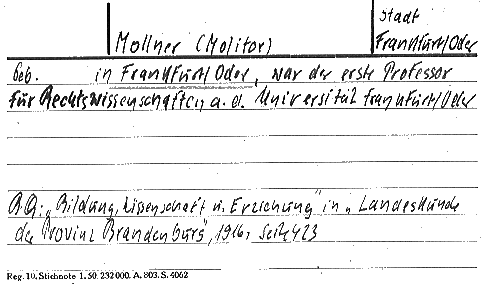 Stadt
Mollner (Molitor) Frankfurt/Oder
geb. in Frankfurt/Oder, war der erste Professor
für Rechtswissenschaften a. d. Universität Frankfurt/Oder
"Bildung, Wissenschaft u. Erziehung" in "Landeskunde
der Provinz Brandenburg", 1916, Seite 423
Reg. 10. Stichnote 1. 50. 232000. A. 803. S. 4062